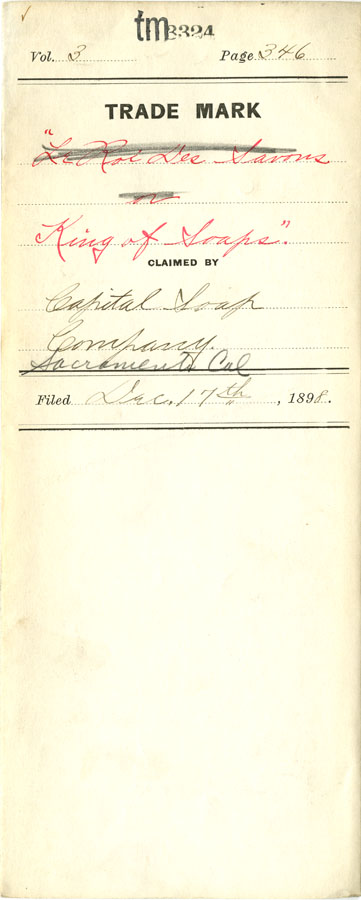 tm 3324
Vol. 3 Page 346
TRADE MARK
"Le Roi Des Savons
or
King of Soaps".
CLAIMED BY
Capital Soap
Company.
Sacramento Cal
Filed Dec. 17th, 1898.